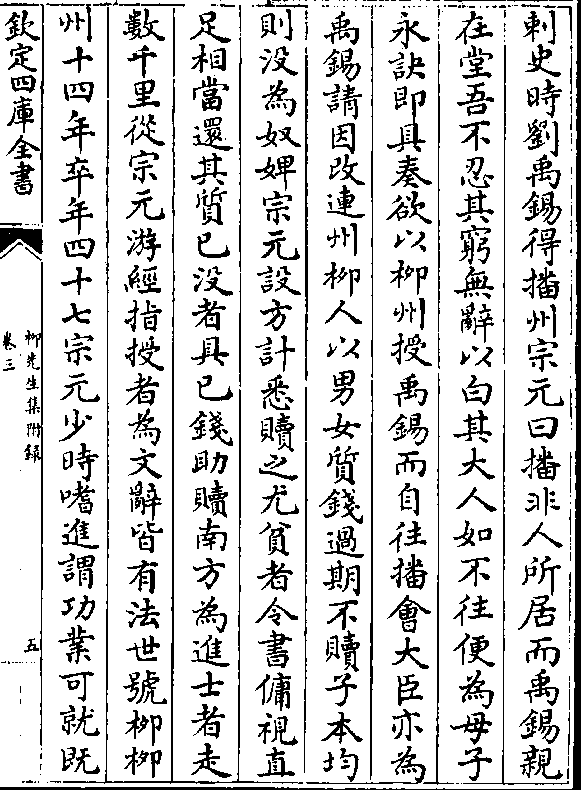 刺史時劉禹錫得播州宗元曰播非人所居而禹錫親
在堂吾不忍其窮無辭以白其大人如不往便為母子
永訣即具奏欲以柳州授禹錫而自往播會大臣亦為
禹錫請因改連州柳人以男女質錢過期不贖子本均
則没為奴婢宗元設方計悉贖之尤貧者令書傭視直
足相當還其質已没者具已錢助贖南方為進士者走
數千里從宗元游經指授者為文辭皆有法世號柳柳
州十四年卒年四十七宗元少時嗜進謂功業可就既
欽定四庫全書
柳先生集附録
卷三
五